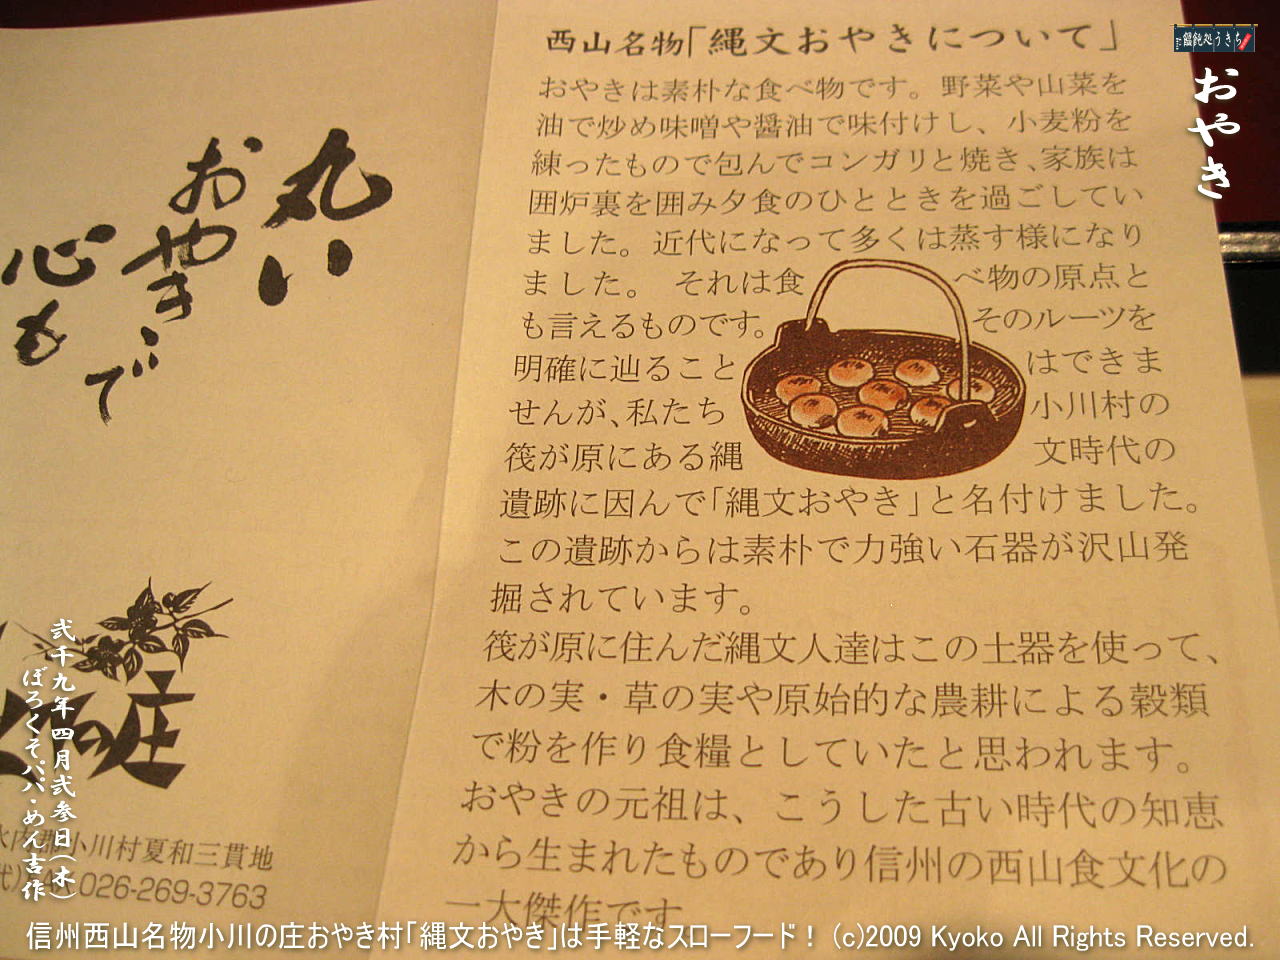 西山名物「縄文おやきについて」
おやきは素朴な食べ物です。野菜や山菜を
油で炒め味噌や醤油で味付けし、小麦粉を
練ったもので包んでコンガリと焼き、家族は
囲炉裏を囲み夕食のひとときを過ごしてい
ました。近代になって多くは蒸す様になり
ました。それは食べ物の原点と
も言えるものです。そのルーツを
明確に辿ることはできま
せんが、私たち小川村の
筏が原にある縄文時代の
遺跡に因んで「縄文おやき」と名付けました。
この遺跡からは素朴で力強い石器が沢山発
掘されています。
筏が原に住んだ縄文人達はこの土器を使って、
木の実・草の実や原始的な農耕による穀類
で粉を作り食糧としていたと思われます。
おやきの元祖は、こうした古い時代の知恵
から生まれたものであり信州の西山食文化の
一大傑作です
丸い
おやきで
心も
の庄
内郡小川村夏和三貫地
026-269-3763
饂飩処うきち
おやき
弐千九年四月弐参日(木)
ぼろくそパパ・めん吉作
信州西山名物小川の庄おやき村「縄文おやき」は手軽なスローフード！ (c)2009 Kyoko All Rights Reserved.